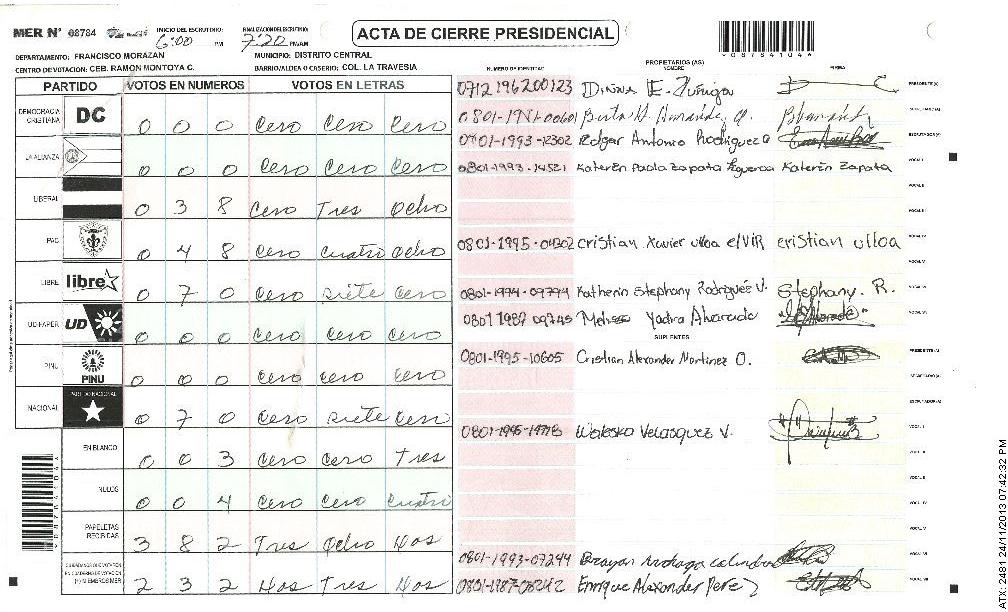 MER N° 08784
INICIO DEL ESCRUTINIO: 6:00 PM
FINALIZACION DEL ESCRUTINIO: 7:20 PM/AM
ACTA DE CIERRE PRESIDENCIAL
*087841044*
DEPARTAMENTO: FRANCISCO MORAZAN MUNICIPIO: DISTRITO CENTRAL
CENTRO DE VOTACION: CEB. RAMON MONTOYA C. BARRIO/ALDEA O CASERIO: COL. LA TRAVESIA
PARTIDO VOTOS EN NUMEROS VOTOS EN LETRAS
DEMOCRACIA CRISTIANA DC 0 0 0 Cero Cero Cero
LA ALIANZA 0 0 0 Cero Cero Cero
LIBERAL 0 3 8 Cero Tres Ocho
PAC 0 4 8 Cero Cuatro Ocho
LIBRE libre 0 7 0 Cero siete Cero
UD-FAPER UD 0 0 0 Cero Cero Cero
PINU PINU 0 0 0 Cero Cero Cero
NACIONAL PARTIDO NACIONAL 0 7 0 Cero siete Cero
EN BLANCO 0 0 3 Cero Cero Tres
NULOS 0 0 4 Cero Cero Cuatro
PAPELETAS RECIBIDAS 3 8 2 Tres Ocho Dos
CIUDADANOS QUE VOTARON EN CUADERNO DE VOTACION (+) MIEMBROS MER 2 3 2 Dos Tres Dos
NUMERO DE IDENTIDAD PROPIETARIOS (AS) NOMBRE FIRMA
0712 196200123 E. Zuniga PRESIDENTE (A)
Berta Hernández SECRETARIO (A)
0801-1993-12302 Edgar Antonio Rodriguez ESCRUTADOR (A)
0801-1993-14521 Katerin Paola Zapata Figueroa Katerin Zapata VOCAL I
VOCAL II
VOCAL III
0801-1995-04302 cristian Xavier ulloa elvir cristian ulloa VOCAL IV
VOCAL V
0801-1994-09794 Katherin Stephany Rodriguez V. Stephany. R. VOCAL VI
0801 1987 09745 Melissa Yadira Alvarado VOCAL VII
SUPLENTES
0801-1995-10605 Cristian Alexander Martinez O. PRESIDENTE (A)
SECRETARIO (A)
ESCRUTADOR (A)
Waleska Velasquez V. VOCAL I
VOCAL II
VOCAL III
VOCAL IV
VOCAL V
0801-1993-07244 Brayan VOCAL VI
Enrique Alexander Perez VOCAL VII
ATX-2481 24/11/2013 07:42:32 PM